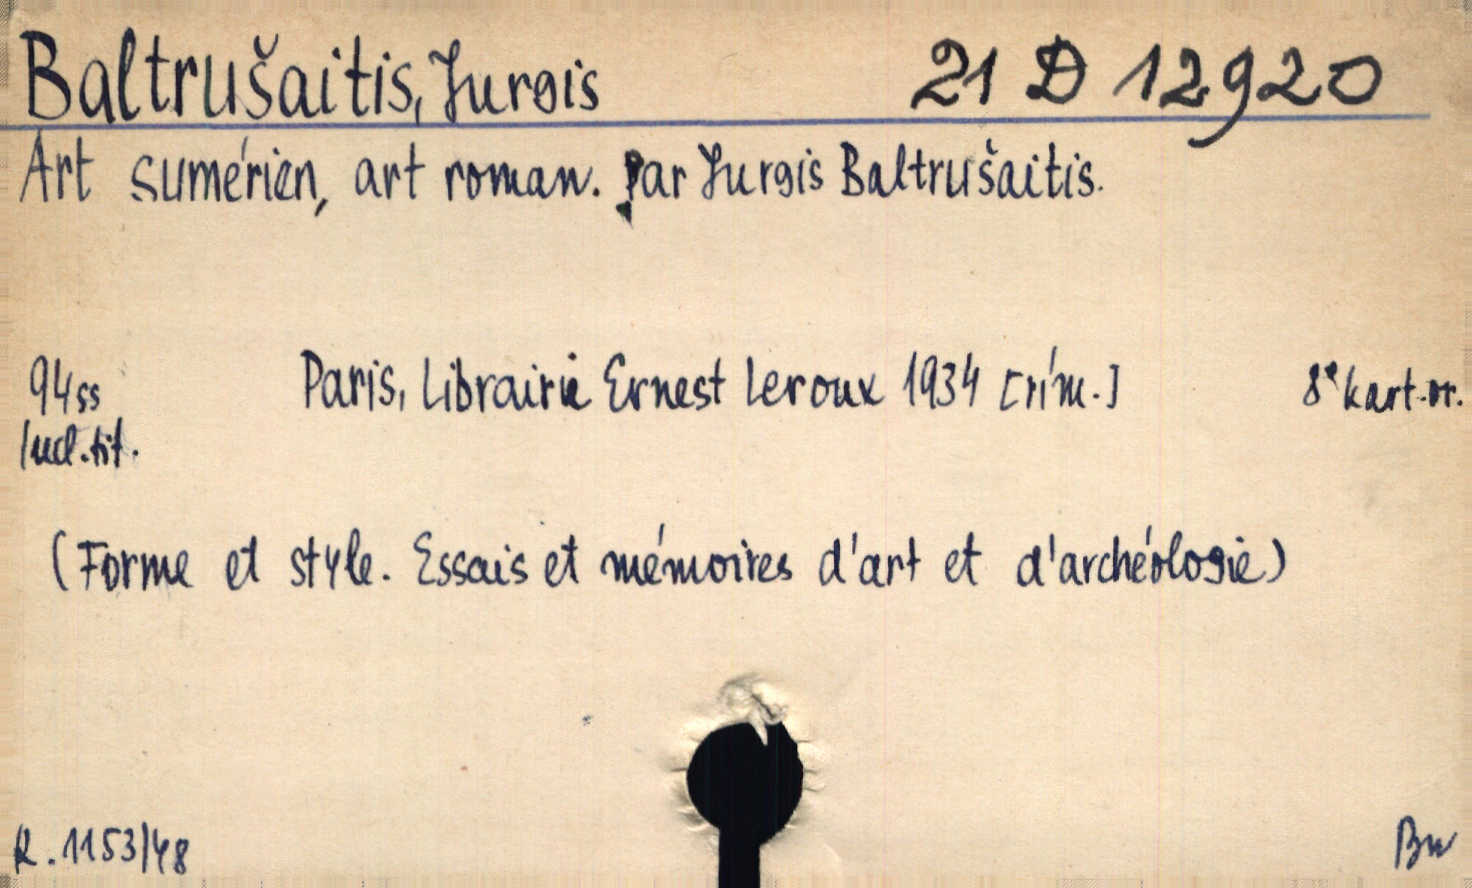 Baltrušaitis, Jurgis 21 D 12920
Art sumérien, art roman. Par Jurgis Baltrušaitis.
94 ss Paris, Librairie Ernest Leroux 1934 [rím.] 8° kart. or.
Incl. tit.
(Forme et style. Essais et mémoires d'art et d'archéologie)
R. 1153/48 Bw